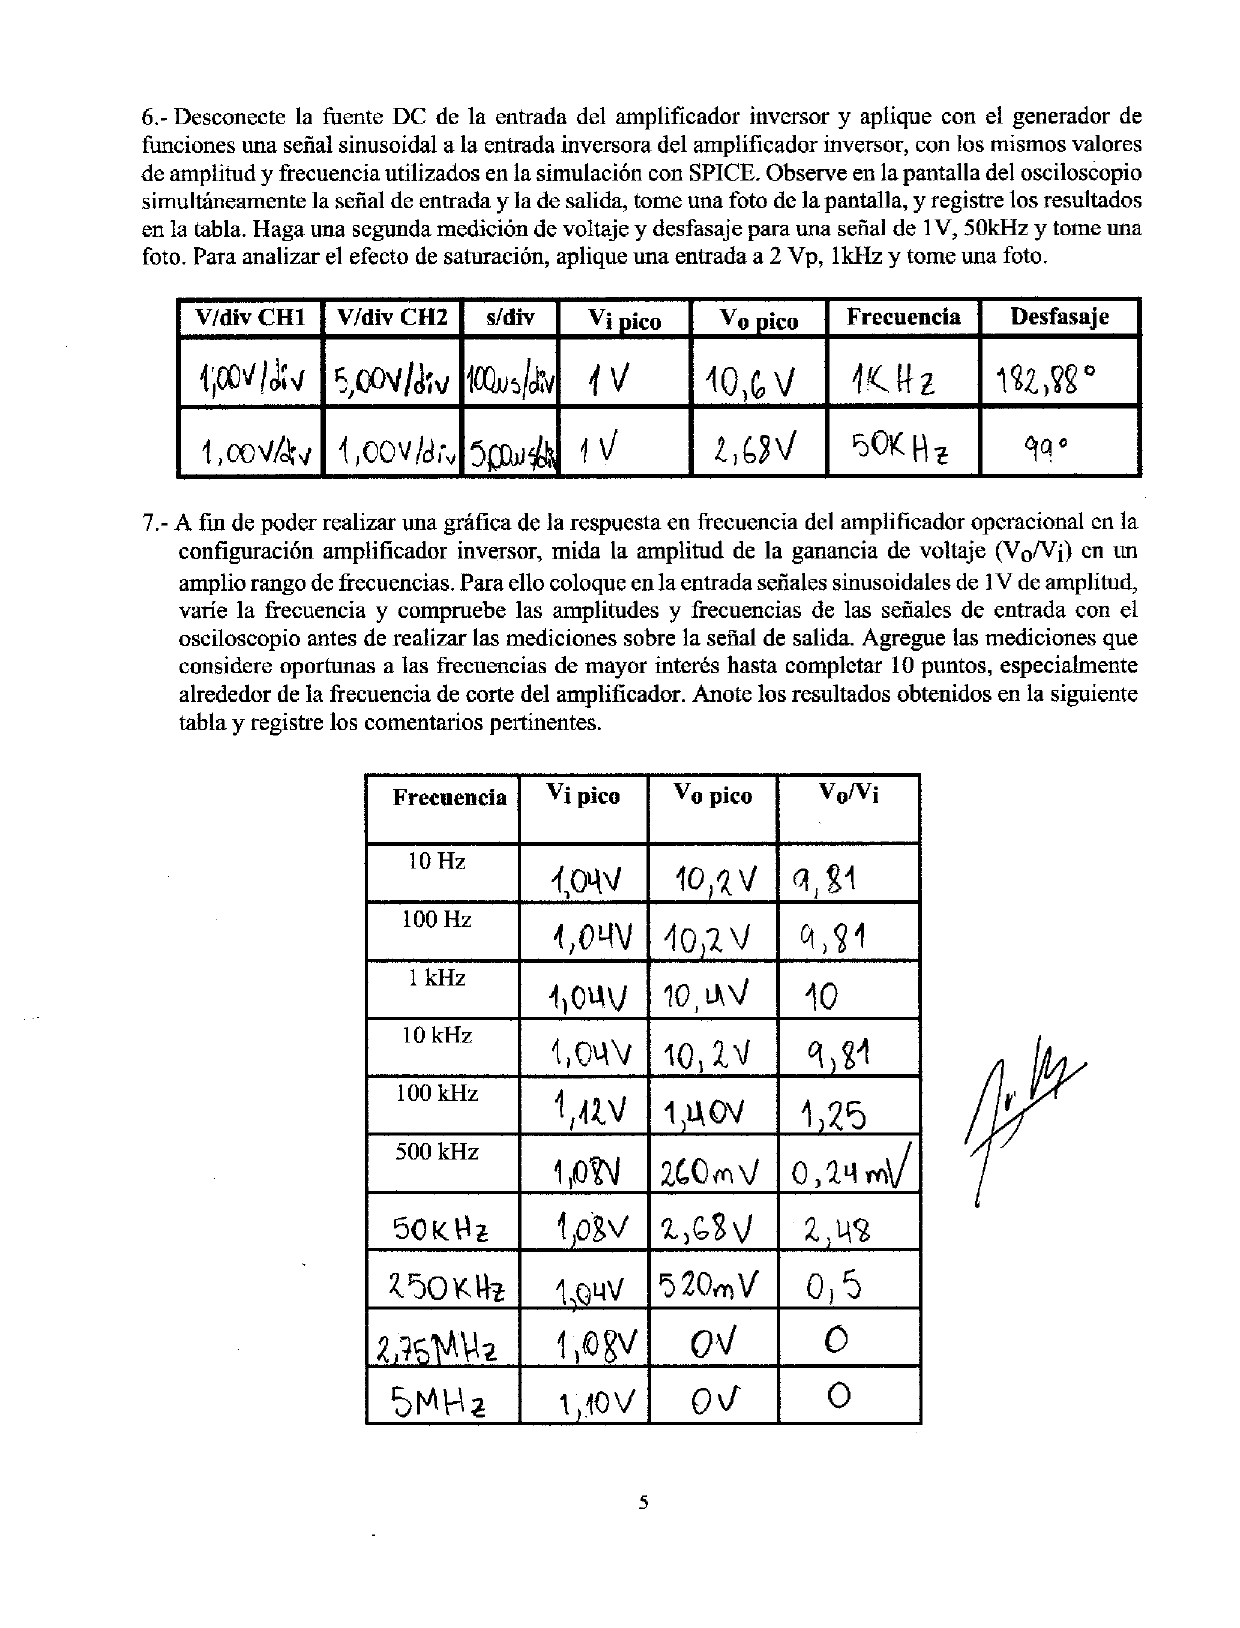 6.- Desconecte la fuente DC de la entrada del amplificador inversor y aplique con el generador de
funciones una señal sinusoidal a la entrada inversora del amplificador inversor, con los mismos valores
de amplitud y frecuencia utilizados en la simulación con SPICE. Observe en la pantalla del osciloscopio
simultáneamente la señal de entrada y la de salida, tome una foto de la pantalla, y registre los resultados
en la tabla. Haga una segunda medición de voltaje y desfasaje para una señal de 1V, 50kHz y tome una
foto. Para analizar el efecto de saturación, aplique una entrada a 2 Vp, 1kHz y tome una foto.
V/div CH1 V/div CH2 s/div Vi pico Vo pico Frecuencia Desfasaje
1,00V/div 5,00V/div 100us/div 1V 10,6V 1KHz 182,88°
1,00V/div 1,00V/div 1V 2,68V 50KHz 99°
7.- A fin de poder realizar una gráfica de la respuesta en frecuencia del amplificador operacional en la
configuración amplificador inversor, mida la amplitud de la ganancia de voltaje (Vo/Vi) en un
amplio rango de frecuencias. Para ello coloque en la entrada señales sinusoidales de 1V de amplitud,
varíe la frecuencia y compruebe las amplitudes y frecuencias de las señales de entrada con el
osciloscopio antes de realizar las mediciones sobre la señal de salida. Agregue las mediciones que
considere oportunas a las frecuencias de mayor interés hasta completar 10 puntos, especialmente
alrededor de la frecuencia de corte del amplificador. Anote los resultados obtenidos en la siguiente
tabla y registre los comentarios pertinentes.
Frecuencia Vi pico Vo pico Vo/Vi
10 Hz 1,04V 10,2V 9,81
100 Hz 1,04V 10,2V 9,81
1 kHz 1,04V 10,4V 10
10 kHz 1,04V 10,2V 9,81
100 kHz 1,12V 1,40V 1,25
500 kHz 1,08V 260mV 0,24mV
50KHz 1,08V 2,68V 2,48
250KHz 1,04V 520mV 0,5
2,75MHz 1,08V 0V 0
5MHz 1,10V 0V 0
5